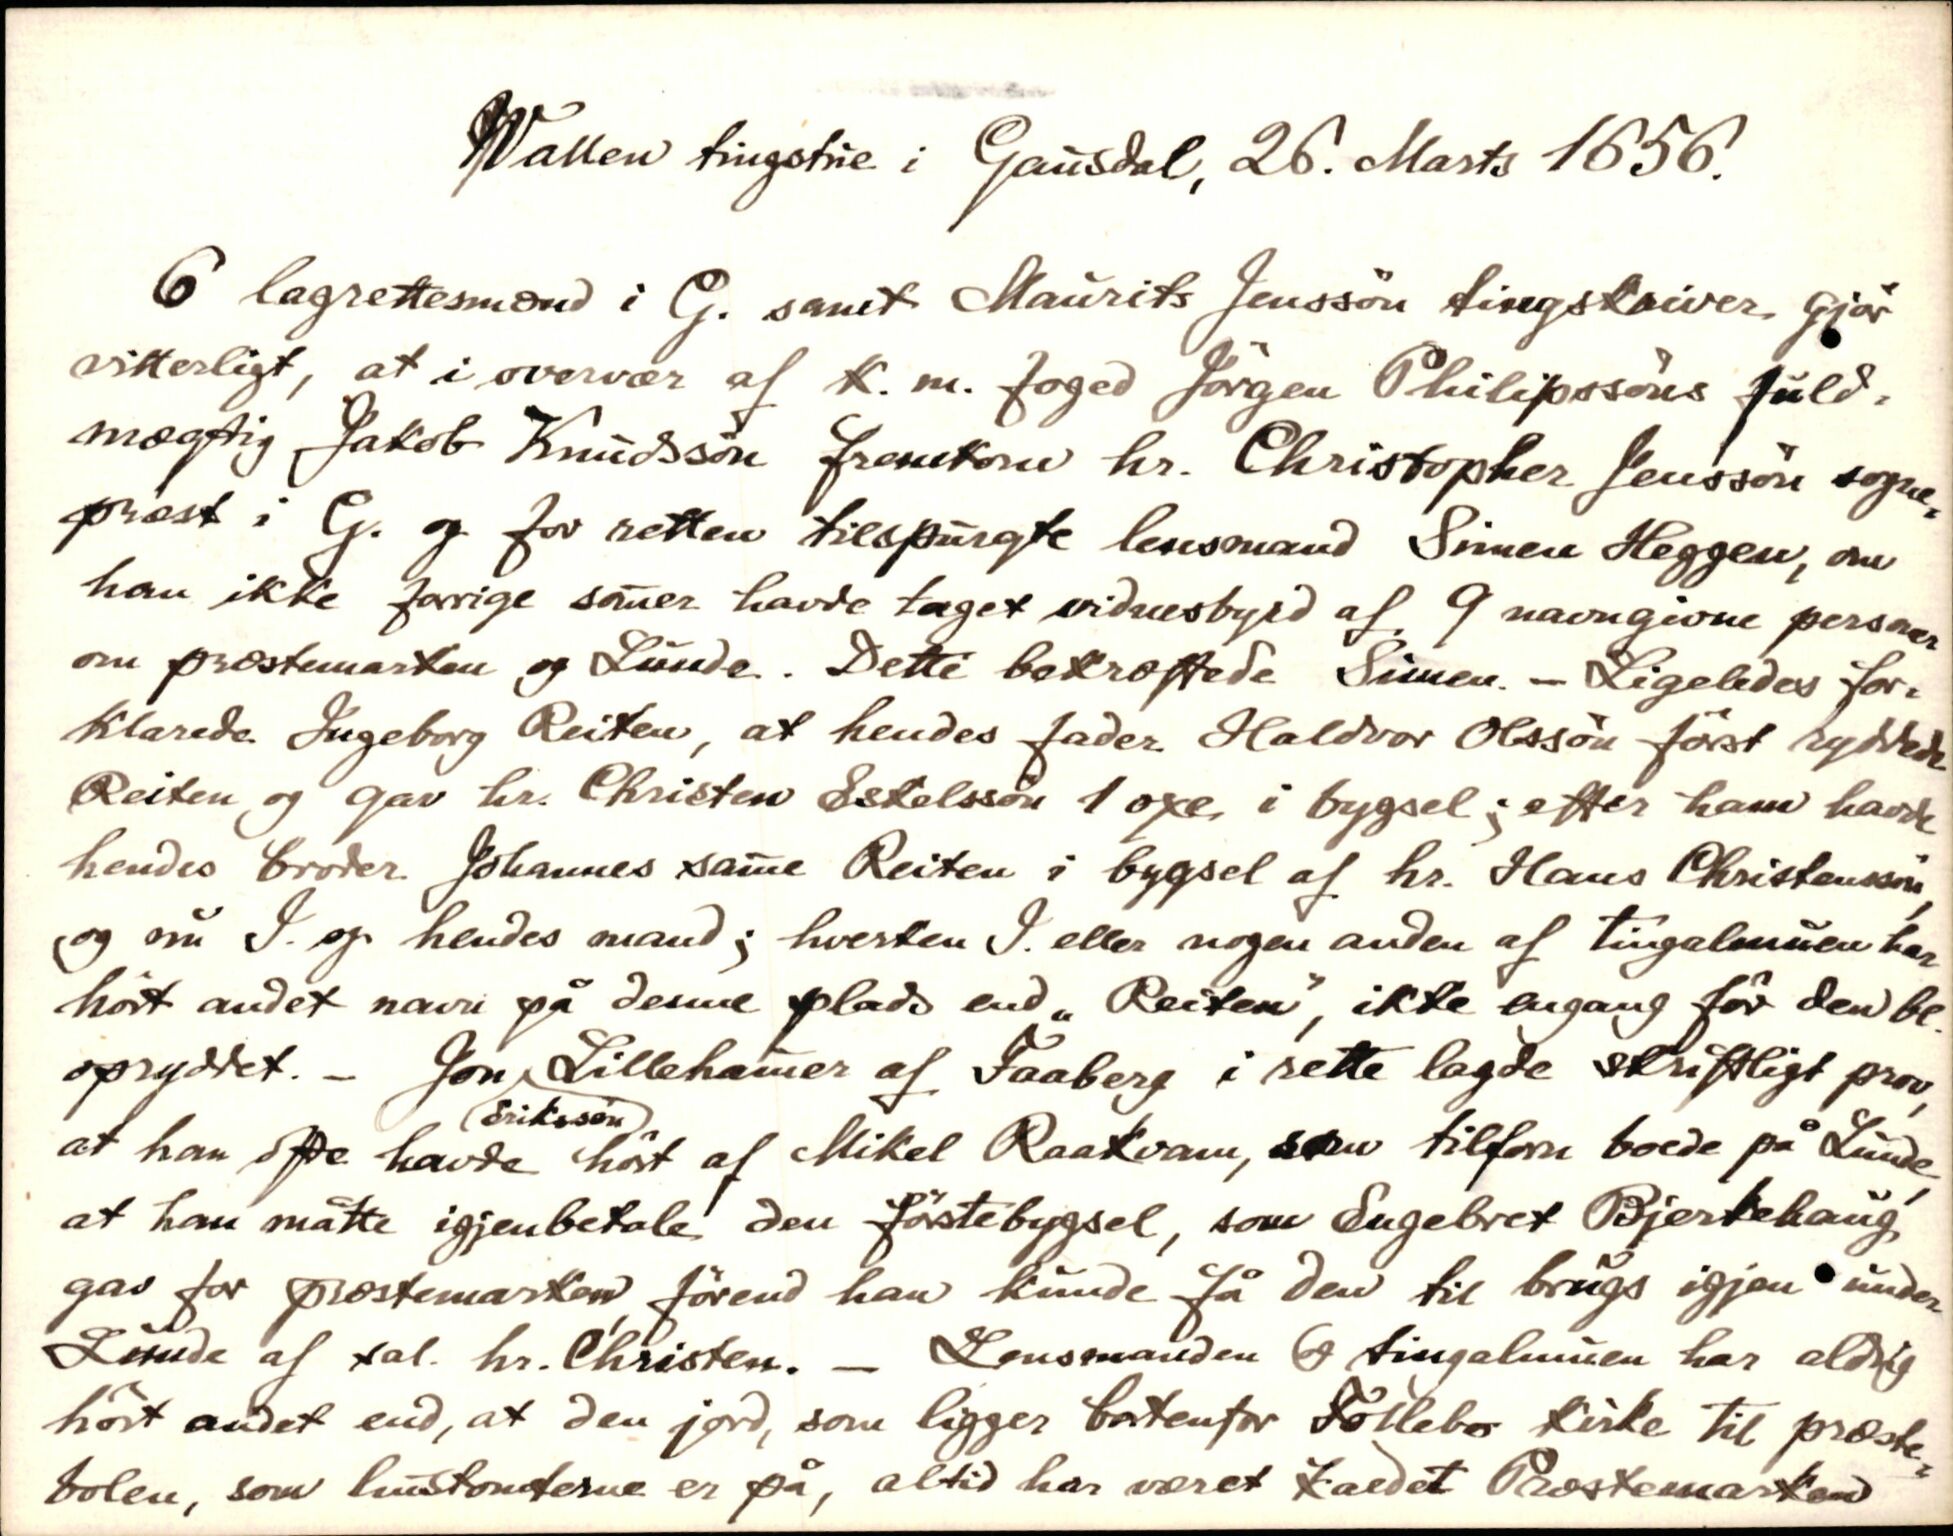 Wallen tingstue i Gausdal, 26. Marts 1656.
6 lagrettesmænd i G. samt Maurits Jenssön tingskriver gjör
vitterligt, at i overvær af k. m. foged Jörgen Philipssöns fuld-
mægtig Jakob Knudssön fremkom hr. Christopher Jenssön sogne-
præst i G. og for retten tilspurgte lensmand Simen Heggen, om
han ikke forrige som̄er havde taget vidnesbyrd af 9 navngivne personer
om præstemarken og Lunde. Dette bekræftede Simen. - Ligeledes for-
klarede Ingeborg Reiten, at hendes fader Haldvor Olssön först ryddede
Reiten og gav hr. Christen Eskelssön 1 oxe i bygsel; efter ham havde
hendes broder Johannes sam̄e Reiten i bygsel af hr. Hans Christenssön,
og nu I. og hendes mand; hverken I. eller nogen anden af tingalmuen har
hört andet navn på denne plads end „Reiten", ikke engang för den bl.
opryddet. - Jon (Erikssön) Lilleham̄er af Faaberg i rette lagde skriftligt prov,
at han ofte havde hört af Mikel Raakvam, som tilforn boede på Lunde,
at han måtte igjenbetale den förstebygsel, som Engebret Bjerkehaug
gav for præstemarken, förend han kunde få den til brugs igjen under
Lunde af sal. hr. Christen. - Lensmanden og tingalmuen har aldrig
hört andet end, at den jord, som ligger bortenfor Föllebo kirke til præste-
bolen, som hustomterne er på, altid har været kaldet Præstemarken